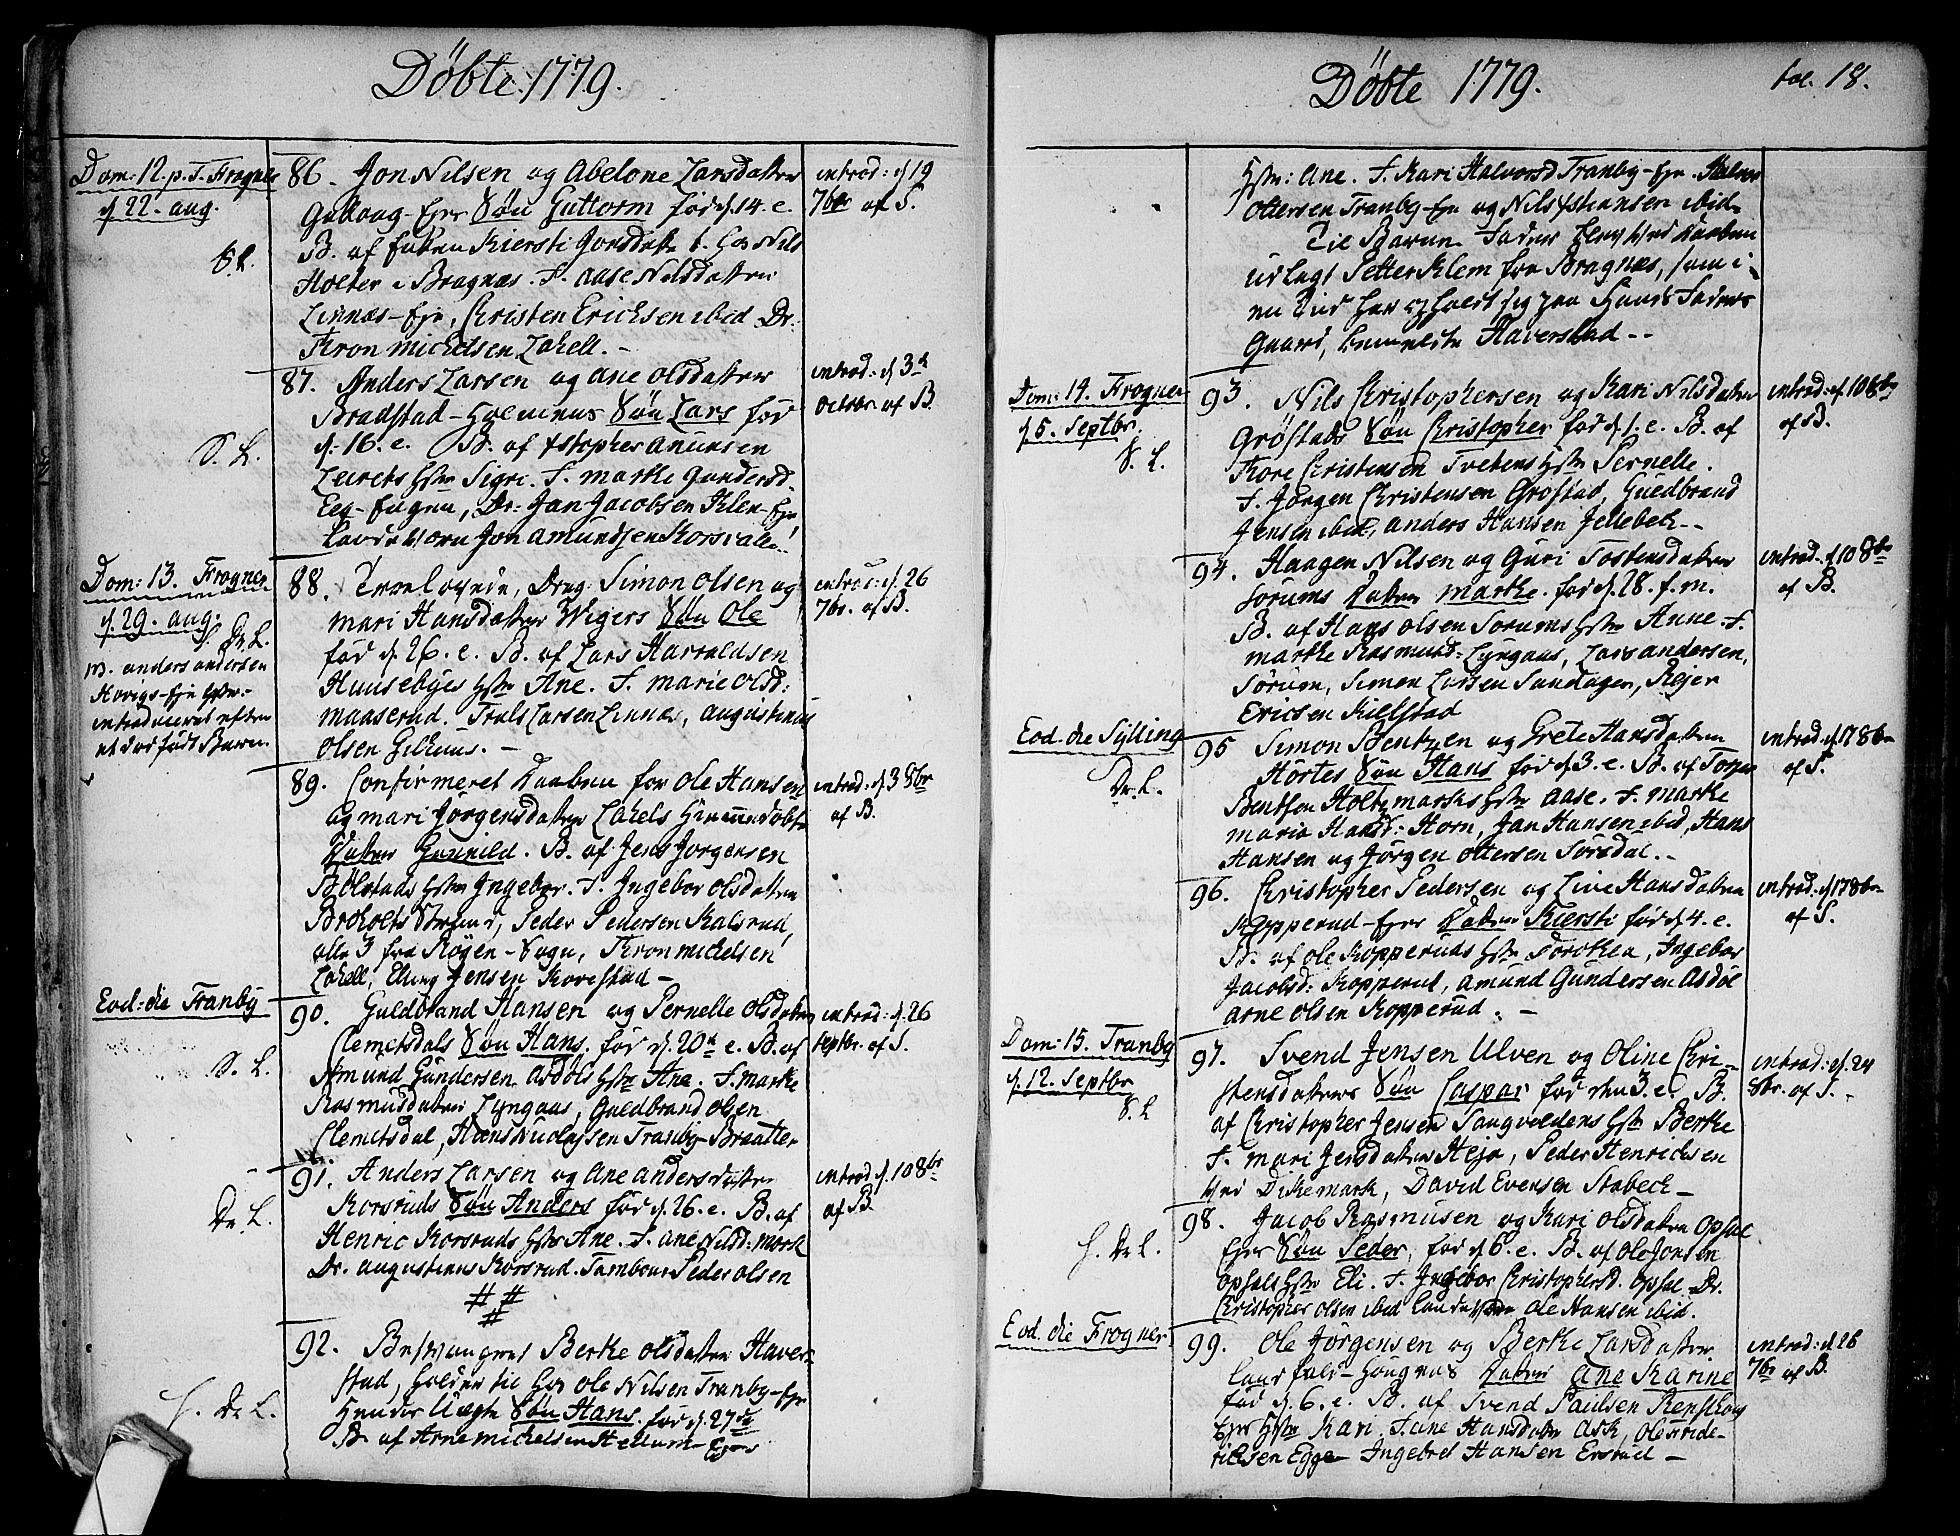 Döbte 1779.
Dom: 12. p. T. Frogner
d. 22. aug.
S. L.
86. Jon Nilsen og Abelone Larsdatter
Gulaug-Ejer Søn Guttorm fød d. 14. e.
B. af Enken Kiersti Jonsdatter t. hos Nils
Holter i Bragnæs. F. Aase Nilsdatter
Linnæs-Eje, Christen Ericksen ibid Dr.
Tron Michelsen Lahell. -
introd: d. 19
7br af S.
S. L.
87. Anders Larsen og Ane Olsdatter
Bradstad-Holmens Søn Lars fød
d. 16. e. B. af Xstopher Amunsen
Leirets Hstr Sigri. F. Marthe Gundersd.
Eeg-Engen, Dr. Jan Jacobsen Klen-Eje
Jon Amundsen Korsvalle.
introd: d. 3d
Octobr. af B.
Dom: 13. Frogner
d. 29. aug.
S. Dr. L.
m. anders andersen
Horigs-Eje Hstr.
introduceret efter
et død født Barn.
88. Trolovede, Drag: Simon Olsen og
Mari Hansdatter Wegers Søn Ole
fød d. 26. e. B. af Lars Harraldsen
Huusebyes Hstr Ane. F. Marie Olsd:
Maaserud. Truls Larsen Linnæs, Augustinus
Olsen Gilhuus. -
introd: d. 26
7br. af B.
89. Confirmeret Daaben for Ole Hansens
og Mari Jörgensdatter Lahels Hiemmedøbte
Datter Gunnild. B. af Jens Jorgensen
Bölstads Hstr Ingebor. F. Ingebor Olsdatter
Broholts, Peder Pedersen Kalsrud,
alle 3 fra Røgen-Sogn, Tron Michelsen
Lahell, Elling Jensen Kovestad -
introd: d. 3 8br
af B.
Eod: die Tranby
S. L.
90. Guldbrand Hansen og Pernelle Olsdatter
Clemetsdals Søn Hans. fød d. 20d e. B. af
Amund Gundersen Asdöls Hstr Ane. F. Marthe
Rasmusdatter Lyngaas, Guldbrand Olsen
Clemetsdal, Hans Nicolassen Tranby-Braatter
introd: d. 26
Septbr. af S.
Dr. L.
91. Anders Larsen og Ane Andersdatter
Korsruds Søn Anders fød d. 26. e. B. af
Henric Korsruds Hstr Ane. F. Ane Nilsd: Mork
Dr. Augustinus Korsrud. Tambour Peder Olsen
# #
#
introd. d. 10 8br
af B.
H. Dr. L.
92. Besvangret Berthe Olsdatter Haver-
stad, holder til hos Ole Nilsen Tranby-Eje
Hendes Uægte Søn Hans. fød d. 27de
B. af Arne Michelsen Hellum-Ejes
Döbte 1779.
fol. 18.
Hstr: Ane. F. Kari Halvorsd Tranby-Eje. Halvor
Ottersen Tranby-Eje og Nils Xstiansen ibid.
Til Barne-Fader blev ved Daaben
udlagt Petter Klem fra Bragnæs, som i
en Tid har opholdt sig paa hendes Faders
Gaard, bemeldte Haverstad - -
Dom: 14. Frogner
d. 5. Septbr.
S. L.
93. Nils Christophersen og Kari Nilsdatter
Gröstads Søn Christopher fød d. 1. e. B. af
Tore Christensen Tvetens Hstr Pernelle.
F. Jörgen Christensen Gröstad, Guldbrand
Jensen ibid, Anders Hansen Jellebek - -
introd: d. 10 8br
af B.
94. Haagen Nilsen og Guri Tostensdatter
Sorums Datter Marthe. fød d. 28. f. m.
B. af Hans Olsen Sorums Hstr Anne. F.
Marthe Rasmusd: Lyngaas, Lars Andersen,
Sörum, Simon Larsen Sundager, Rejer
Ericsen Kielstad
introd: d. 10 8br
af B.
Eod. die Sylling
Dr. L.
95 Simon Bentzen og Grete Hansdatter
Hörtes Søn Hans fød d. 3. e. B. af Torger
Bentsen Holtzmarks Hstr Aase. F. Marthe
Maria Hansd: Horn, Jan Hansen ibid, Hans
Hansen og Jörgen Ottersen Sørsdal. -
introd: d. 17 8br
af S.
96. Christopher Pedersen og Live Hansdatter
Kopperud-Ejes Datter Kiersti fød d. 4. e.
B. af Ole Kopperuds Hstr Dorthea, Ingebor
Jacobsd: Kopperud, Amund Gundersen Asdöl
Arne Olsen Kopperud. -
introd: d. 17 8br
af S.
Dom: 15. Tranby
d. 12. Septbr
S. L
97. Svend Jensen Ulven og Oline Chri-
stensdatters Søn Caspar fød den 3. e. B.
af Christopher Jensen Saugveldens Hstr Berthe
F. Mari Jensdatter Heja, Peder Henrichsen
ved Dikemark, David Evensen Stabeck -
introd: d. 24
8br. af S. -
H. Dr. L.
98. Jacob Rasmusen og Kari Olsdatter Opsal
Ejes Søn Peder, fød d. 6. e. B. af Ole Jonsen
Opsals Hstr Eli. F. Ingebor Christophersd. Opsal Dr.
Christopher Olsen ibid Ole Hansen ibid.
Eod. die Frogner
99. Ole Jørgensen og Berthe Larsdatter
Laurfald-Hougnes Datter Ane Karine
fød d. 6. e. B. af Svend Paulsen Renskoug
Ejes Hstr Kari. F. Ane Hansdatter Ask, Ole Stide-
rilsen Egge Ingebret Hansen Enstad -
introd: d. 26
7br af B.